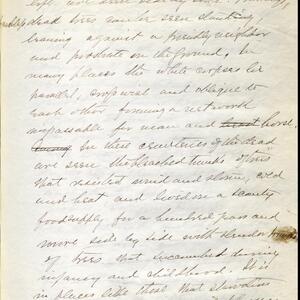 dead trees can be seen standing,
leaning against a friendly neighbor
and prostrate on the ground, In
many places the white corpses lie
parallel, crosswise and oblique to
each other forming a network
impassable for man and beast horse
In these cemeteries of the dead
are seen the bleached trunks of trees
that resisted wind and storm, cold
and heat and lived on a scanty
food supply for a hundred years and
more side by side with slender trunks
of trees that succumbed during
infancy and childhood. It is
in places like these that